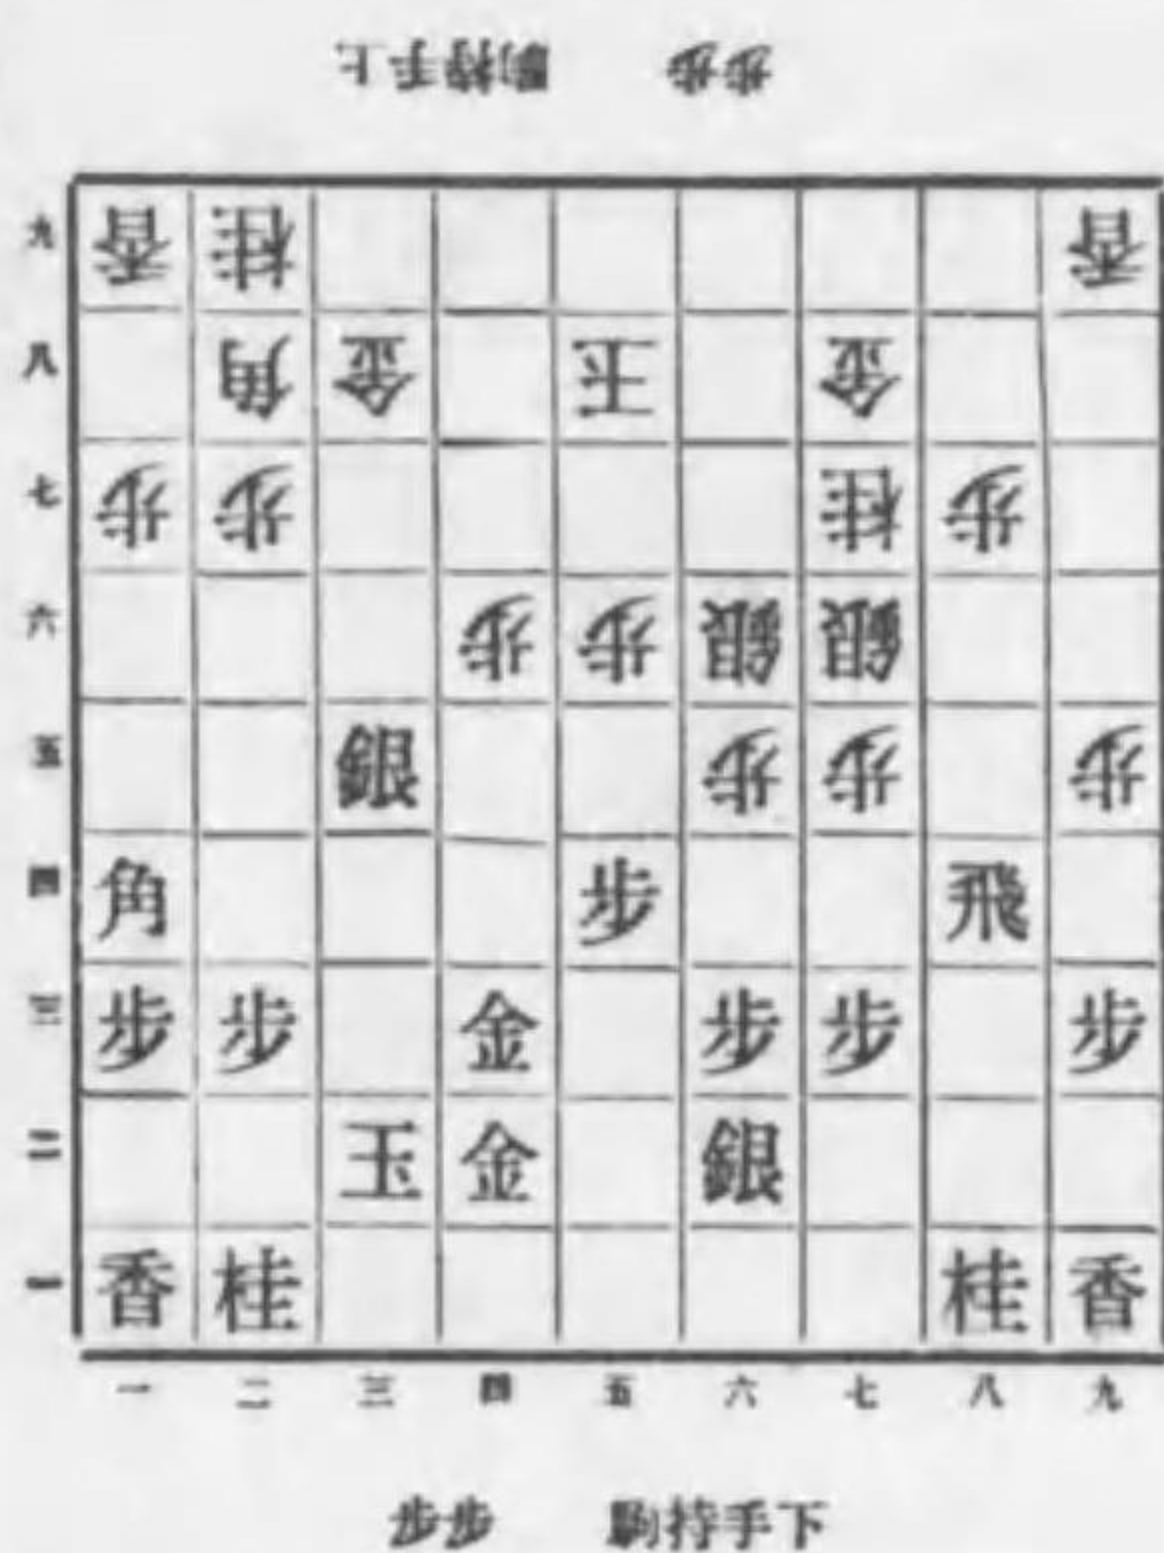 上手持駒 歩歩
九 香 桂 香
八 角 金 玉 金
七 歩 歩 桂 歩
六 歩 歩 銀 銀
五 銀 歩 歩 歩
四 角 歩 飛
三 歩 歩 金 歩 歩 歩
二 玉 金 銀
一 香 桂 桂 香
一 二 三 四 五 六 七 八 九
歩歩 駒持手下